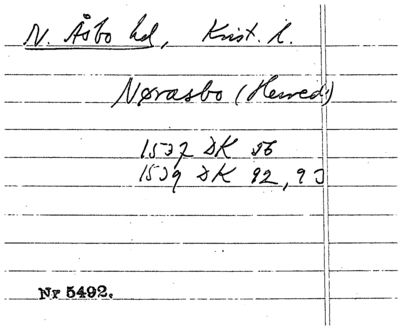 N. Åsbo hd, Krist. l.
Nørasbo (Herred)
1537 DK 56
1539 DK 92, 93
Nr 5492.